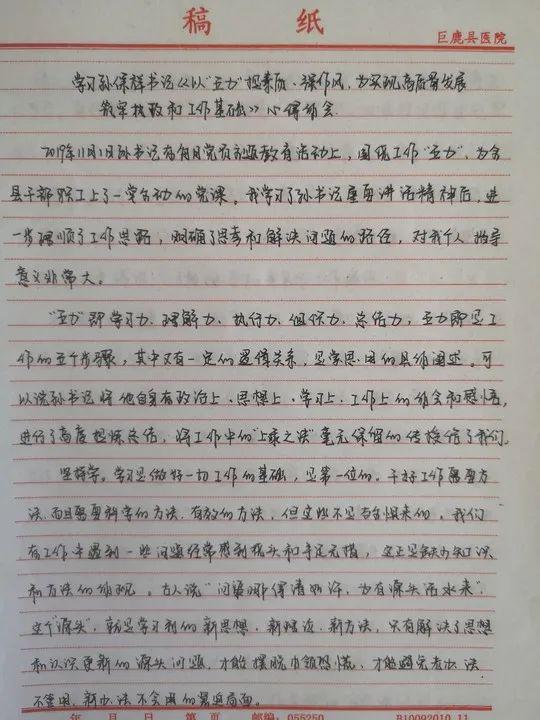 稿 纸
巨鹿县医院
学习孙保祥书记《以"五力"提素质、强作风,为实现高质量发展
筑牢执政和工作基础》心得体会.
2019年11月1日孙书记在每月党员主题教育活动上,围绕工作"五力",为全
县干部职工上了一堂生动的党课。我学习了孙书记重要讲话精神后,进
一步理顺了工作思路,明确了思考和解决问题的路径,对我个人指导
意义非常大。
"五力"即学习力、理解力、执行力、组织力、总结力,五力即是工
作的五个步骤,其中又有一定的逻辑关系,是学思用的具体阐述。可
以说孙书记将他自身在政治上、思想上、学习上、工作上的体会和感悟,
进行了高度提炼总结,将工作中的"上乘之法"毫无保留的传授给了我们。
坚持学。学习是做好一切工作的基础,是第一位的。干好工作需要方
法,而且需要科学的方法、有效的方法,但这些不是与生俱来的。我们
在工作中遇到一些问题经常感到挠头和手足无措,这正是缺少知识
和方法的体现。古人说"问渠哪得清如许,为有源头活水来",
这个"源头",就是学习到的新思想、新理论、新方法,只有解决了思想
和认识更新的源头问题,才能摆脱本领恐慌,才能避免老办法
不管用,新办法不会用的尴尬局面。
年 月 日 第 页 邮编:055250 B10092010.11